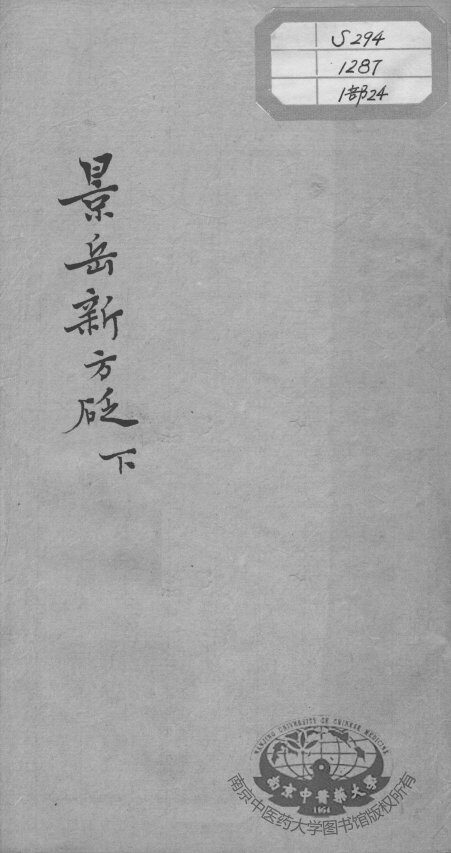 S294
1287
1部24
景岳新方砭
下
NANJING UNIVERSITY OF CHINESE MEDICINE
南京中醫藥大學
1954
南京中医药大学图书馆版权所有